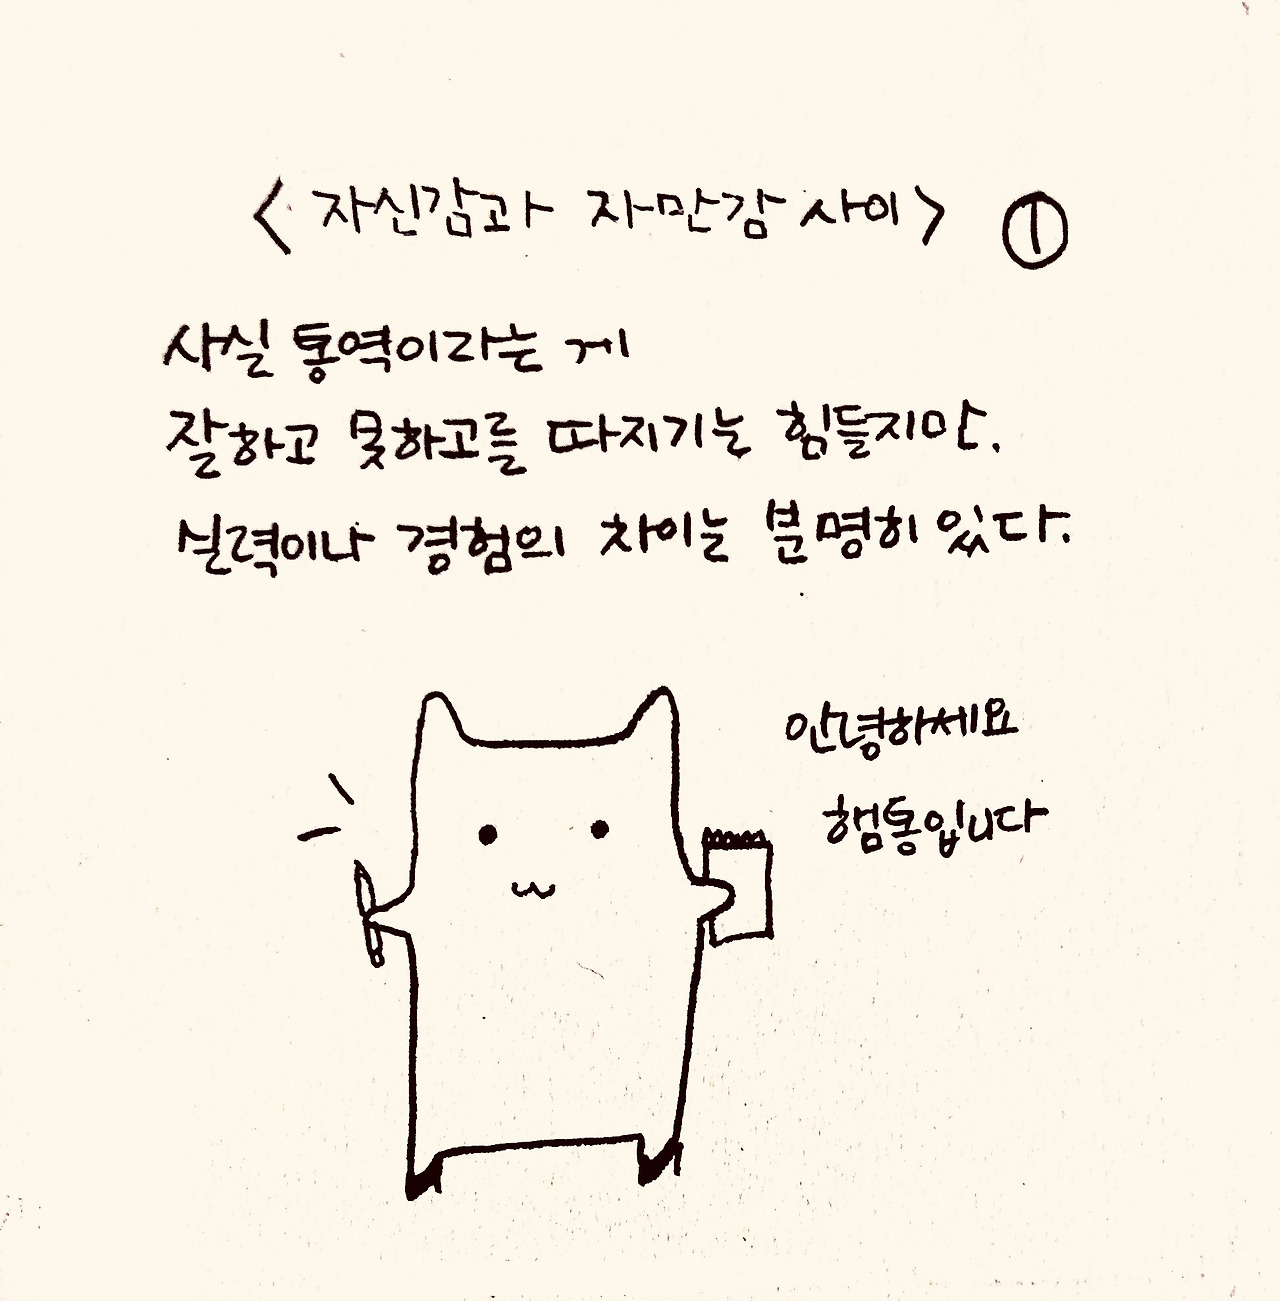 <자신감과 자만감 사이> ①
사실 통역이라는 게
잘하고 못하고를 따지기는 힘들지만.
실력이나 경험의 차이는 분명히 있다.
안녕하세요
햄통입니다